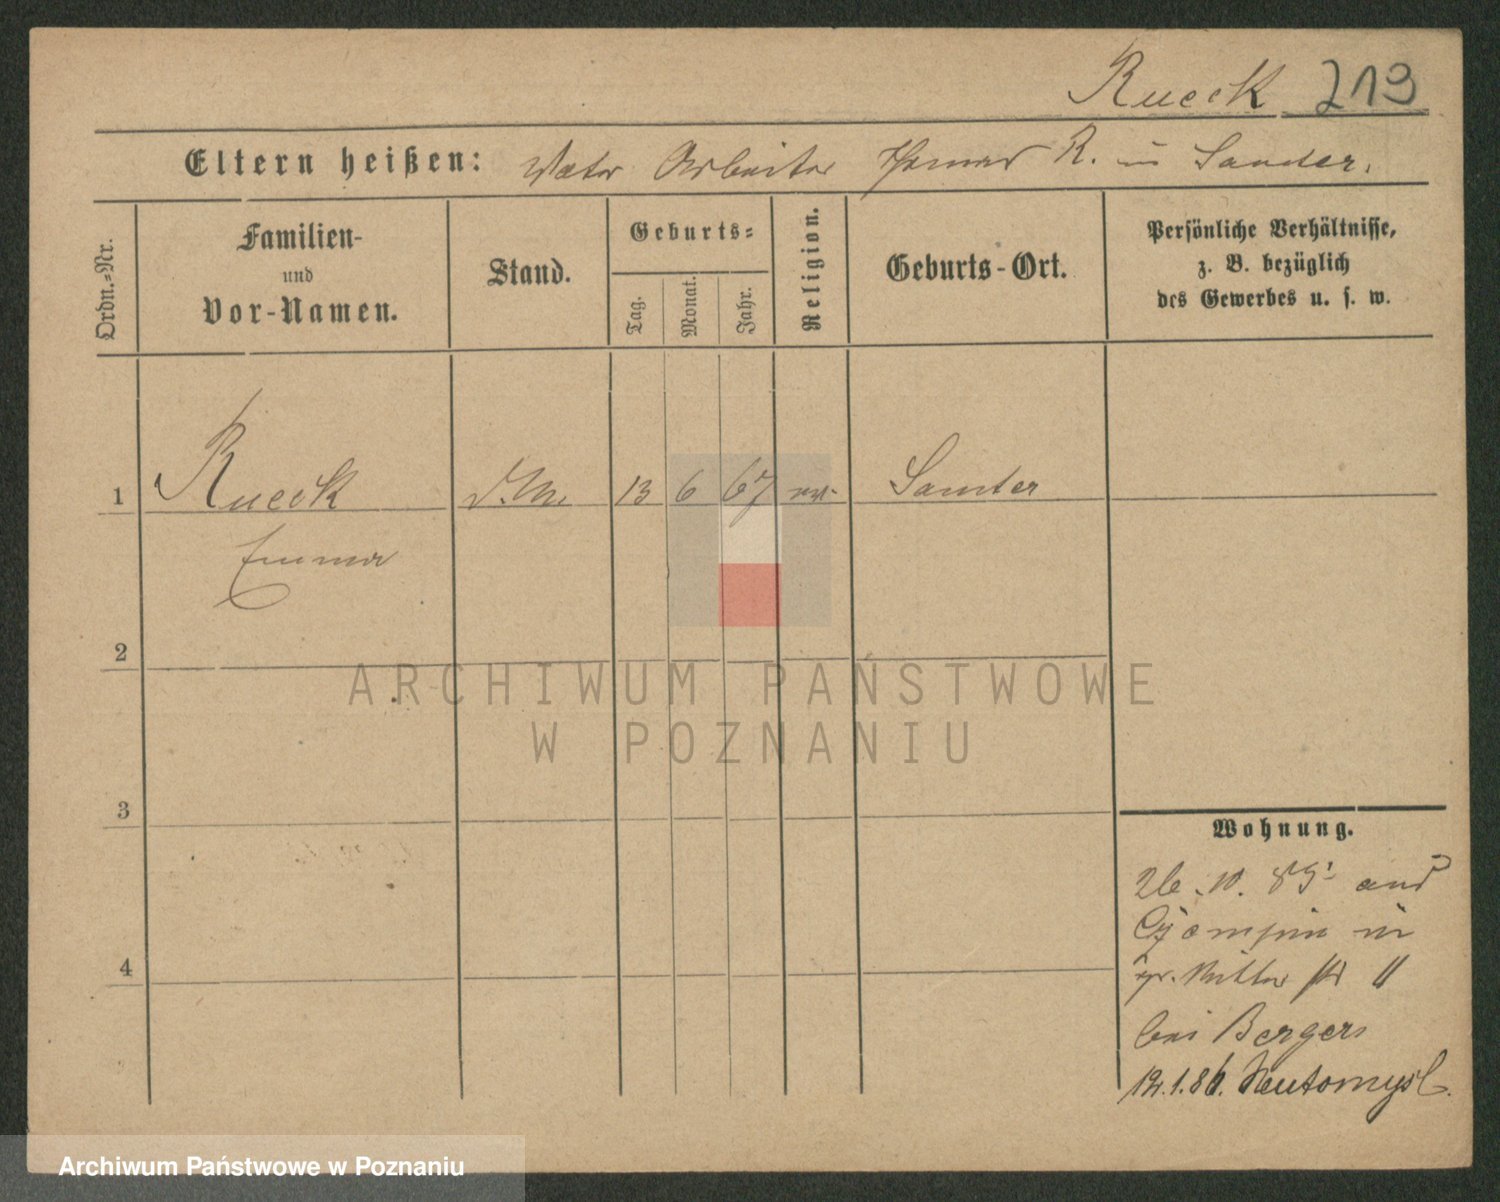 Rueck 219
Eltern heißen: Vater Arbeiter R. in Samter.
Ordn.-Nr.
Familien-
und
Vor-Namen.
Stand.
Geburts-
Tag.
Monat.
Jahr.
Religion.
Geburts-Ort.
Persönliche Verhältnisse,
z. B. bezüglich
des Gewerbes u. s. w.
1 Rueck 13 6 67 ev. Samter
Emma
2
ARCHIWUM PAŃSTWOWE
W POZNANIU
3
Wohnung.
26. 10. 85
in
gr. Ritter str 11
bei Bergers
4
12.1.86. Neutomysl.
Archiwum Państwowe w Poznaniu